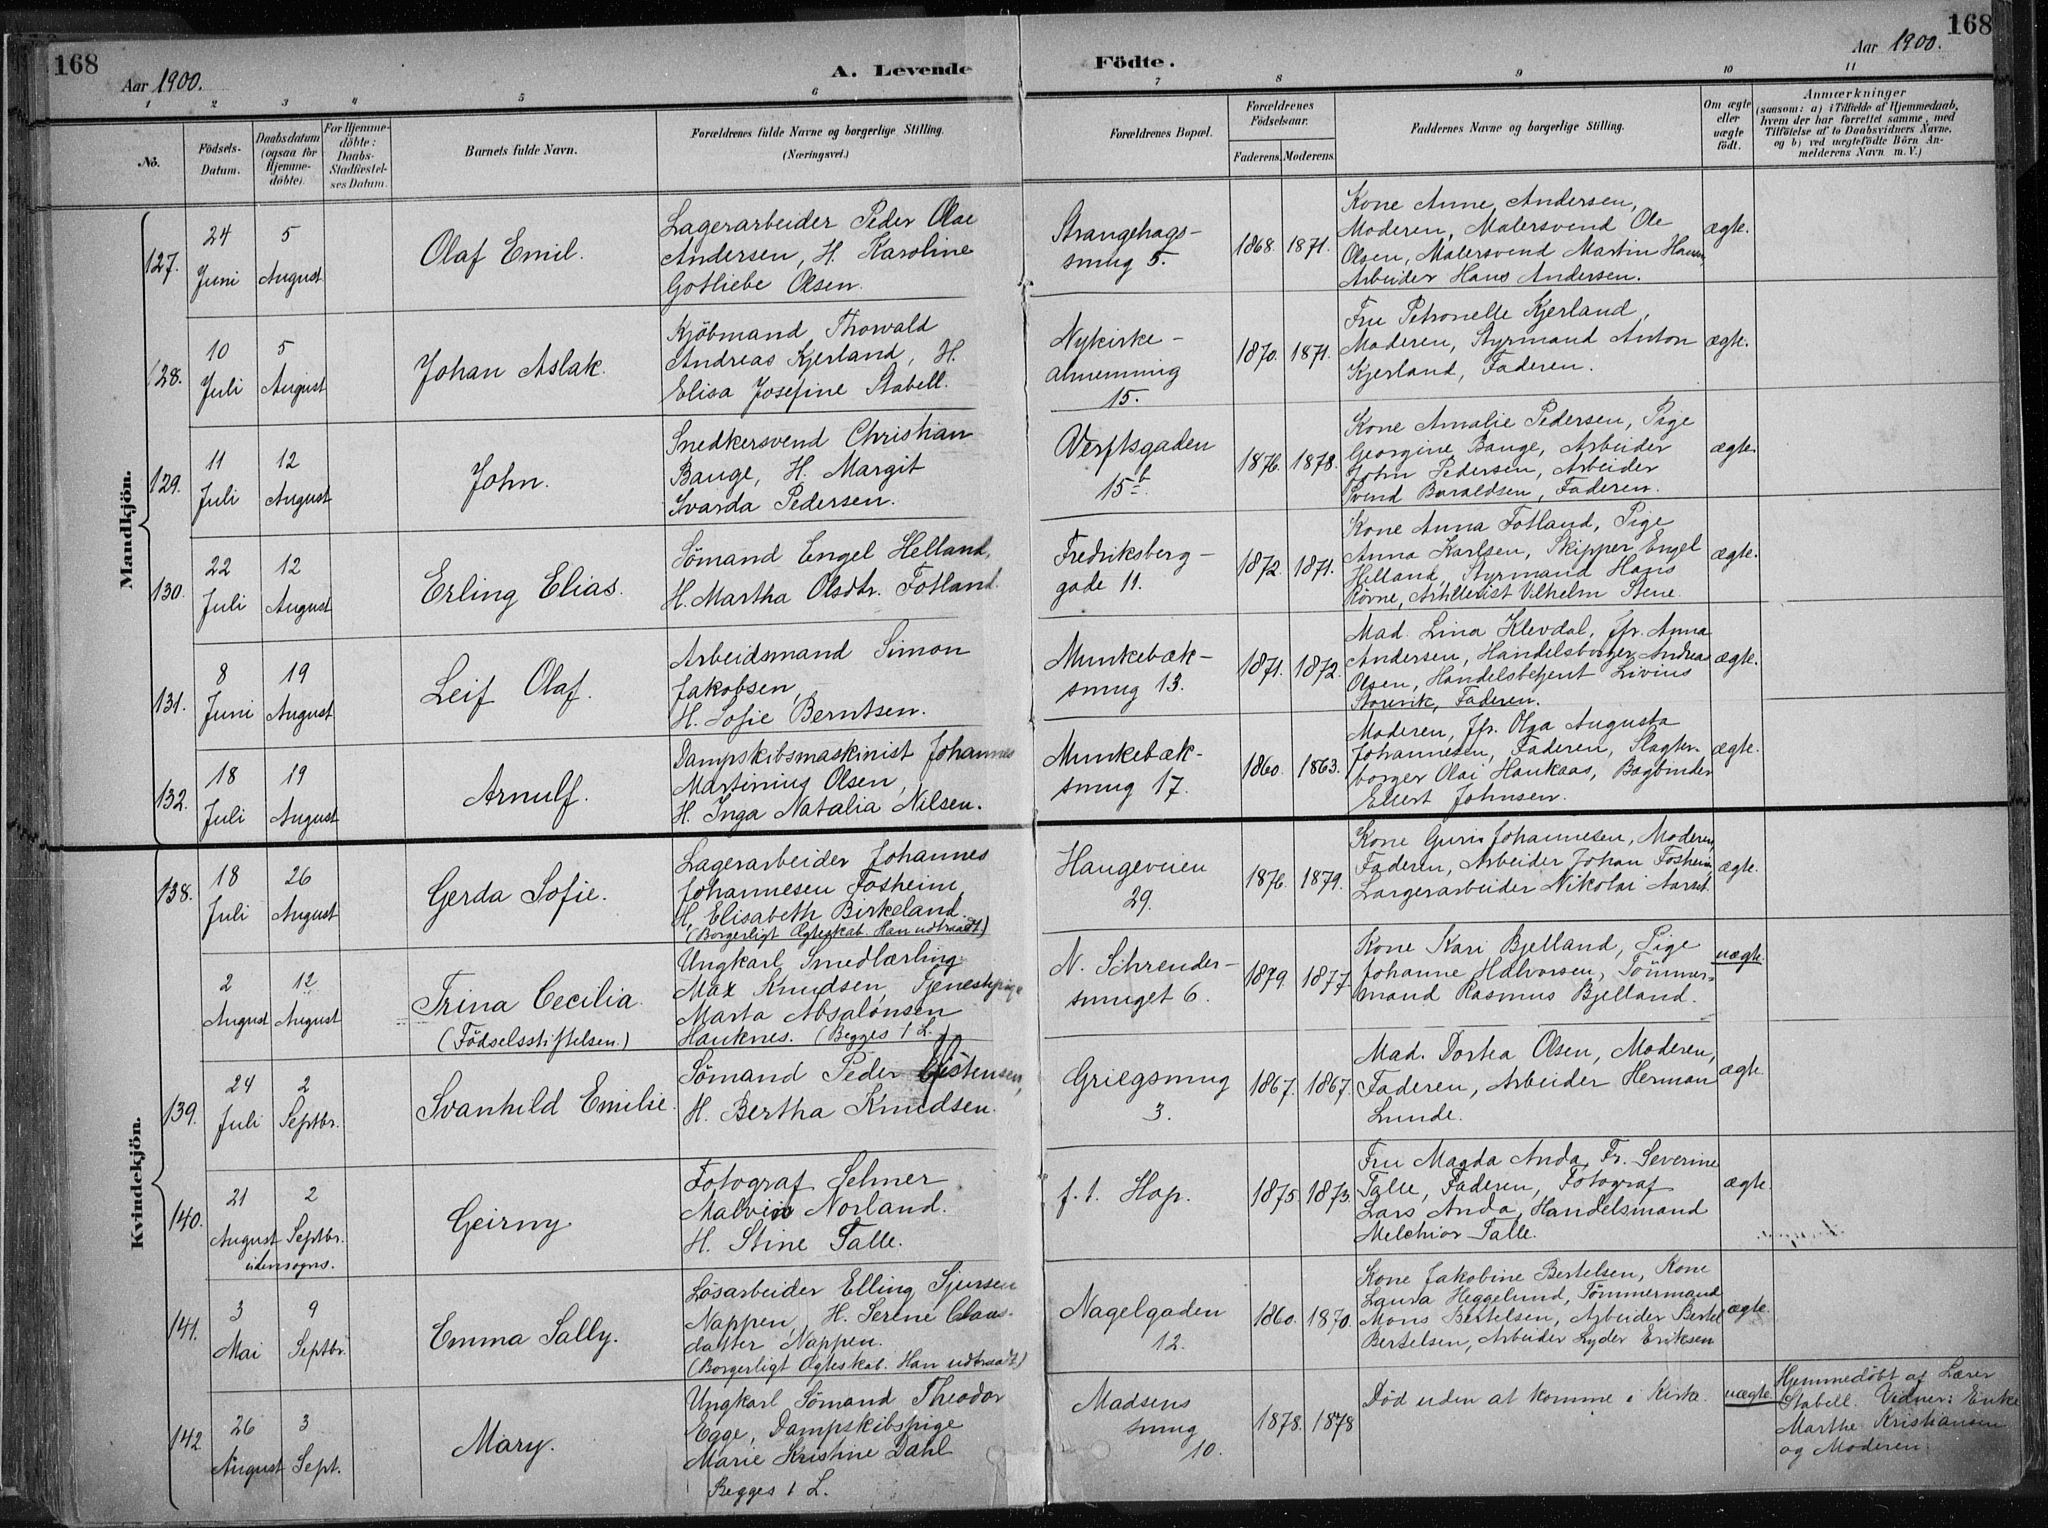 168
168
Aar 1900.
A. Levende
Födte.
Aar 1900.
1 2 3 4 5 6 7 8 9 10 11
No.
Födsels-
Datum.
Daabsdatum
(ogsaa for
Hjemme-
döbte).
For Hjemme-
döbte:
Daabs-
Stadfæstel-
ses Datum.
Barnets fulde Navn.
Forældrenes fulde Navne og borgerlige Stilling.
(Næringsvei.)
Forældrenes Bopæl.
Forældrenes
Födselsaar.
Faderens. Moderens.
Faddernes Navne og borgerlige Stilling.
Om ægte
eller
uægte
födt.
Anmærkninger
(saasom: a) i Tilfælde af Hjemmedaab,
hvem der har forrettet samme, med
Tilföielse af to Daabsvidners Navne,
og b) ved uægtefödte Börn An-
melderens Navn m. V.)
Mandkjön.
127.
24
Juni
5
August
Olaf Emil.
Lagerarbeider Peder Olae
Andersen, H. Karoline
Gotliebe Olsen.
Strangehags-
smug 5.
1868. 1871.
Kone Anne Andersen,
Moderen, Malersvend Ole
Olsen, Malersvend Martin Hansen,
Arbeider Hans Andersen.
ægte.
128.
10
Juli
5
August
Johan Aslak.
Kjöbmand Thorvald
Andreas Kjerland, H.
Elisa Josefine Stabell.
Nykirke-
almenning
15.
1870. 1871.
Fru Petronelle Kjerland,
Moderen, Styrmand Anton
Kjerland, Faderen.
ægte.
129.
11
Juli
12
August
John.
Snedkersvend Christian
Bauge, H. Margit
Svarda Pedersen.
Verftsgaden
15 b.
1876. 1878.
Kone Amalie Pedersen, Pige
Georgine Bauge, Arbeider
John Pedersen, Arbeider
Svend Baraldsen, Faderen.
ægte.
130.
22
Juli
12
August
Erling Elias.
Sömand Engel Helland,
H. Martha Olsdtr. Fotland.
Fredriksberg-
gade 11.
1872. 1871.
Kone Anna Fotland, Pige
Anna Karlsen, Skipper Engel
Helland, Styrmand Hans
Rövne, Artillerist Vilhelm Stene.
ægte.
131.
8
Juni
19
August
Leif Olaf.
Arbeidsmand Simon
Jakobsen,
H. Sofie Berntsen.
Munkebæk-
smug 13.
1871. 1872.
Mad. Lina Klevdal, Jfr. Anna
Andersen, Handelsborger Andreas
Olsen, Handelsbetjent Livius
Storevik, Faderen.
ægte.
132.
18
Juli
19
August
Arnulf.
Dampskibsmaskinist Johannes
Martinius Olsen,
H. Inga Natalia Nilsen.
Munkebæk-
smug 17.
1860. 1863.
Moderen, Jfr. Olga Augusta
Johannesen, Faderen, Slagter-
borger Olai Haukaas, Bogbinder
Ellert Johnsen.
ægte.
Kvindekjön.
138.
18
Juli
26
August
Gerda Sofie.
Lagerarbeider Johannes
Johannesen Fosheim,
H. Elisabeth Birkeland.
(Borgerligt Ægteskab. Han udtraadt)
Haugeveien
29.
1876. 1879.
Kone Guri Johannesen, Moderen,
Faderen, Arbeider Johan Fosheim
Largerarbeider Nikolai Aarset.
ægte.
2
August
12
August
Trina Cecilia.
(Födselsstiftelsen.)
Ungkarl Smedlærling
Max Knudsen, Tjenestepige
Marta Absalonsen
Hauknes. (Begges 1 L.)
N. Schreuder-
smuget 6.
1879. 1877.
Kone Kari Bjelland, Pige
Johanne Halvorsen, Tömmer-
mand Rasmus Bjelland.
uægte.
139.
24
Juli
2
Septbr.
Svanhild Emilie.
Sömand Peder
H. Bertha Knudsen.
Griegsmug
3.
1867. 1867.
Mad. Dortea Olsen, Moderen,
Faderen, Arbeider Herman
Lunde.
ægte.
140.
21
August
2
Septbr.
udensogns.
Geirny
Fotograf Selmer
Malvin Norland.
H. Stine Talle.
f. t. Hop.
1875. 1873.
Fru Magda Anda, Fr. Severine
Talle, Faderen, Fotograf
Lars Anda, Handelsmand
Melchior Talle.
ægte.
141.
3
Mai
9
Septbr.
Emma Sally.
Lösarbeider Elling Sjursen
Nappen, H. Serene Claas-
datter Nappen.
(Borgerligt Ægteskab. Han udtraadt)
Nagelgaden
12.
1860. 1870.
Kone Jakobine Bertelsen, Kone
Laura Heggelund, Tömmermand
Mons Bertelsen, Arbeider Bertel
Bertelsen, Arbeider Lyder Eriksen
ægte.
142
26
August
3
Sept.
Mary.
Ungkarl Sömand Theodor
Egge, Dampskibspige
Marie Kristine Dahl
Begges 1 L.
Madsens
smug
10.
1878. 1878
Död uden at komme i Kirke.
uægte
Hjemmedöbt af Lærer
Stabell. Vidner: Enke
Marthe Kristiansen
og Moderen.